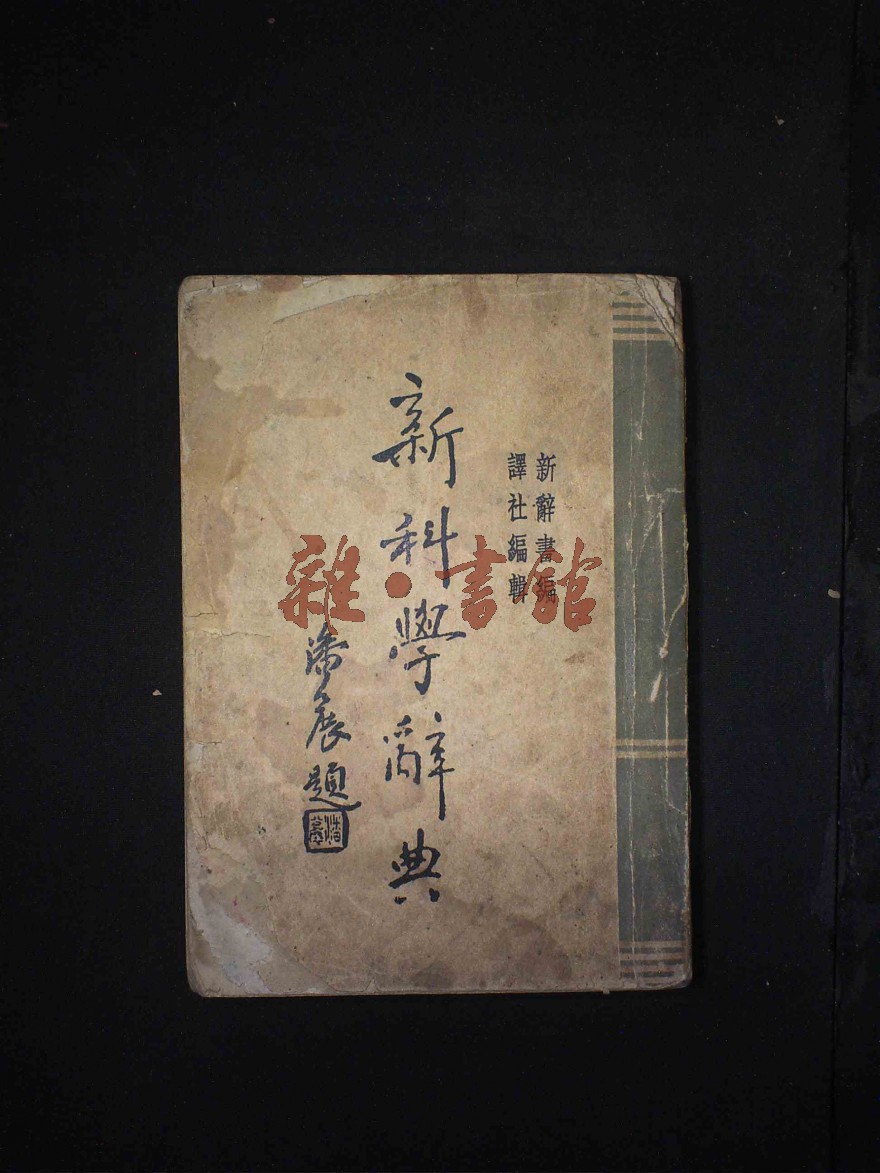 新辭書編
譯社編輯
新科學辭典
潘展題
雜·書館